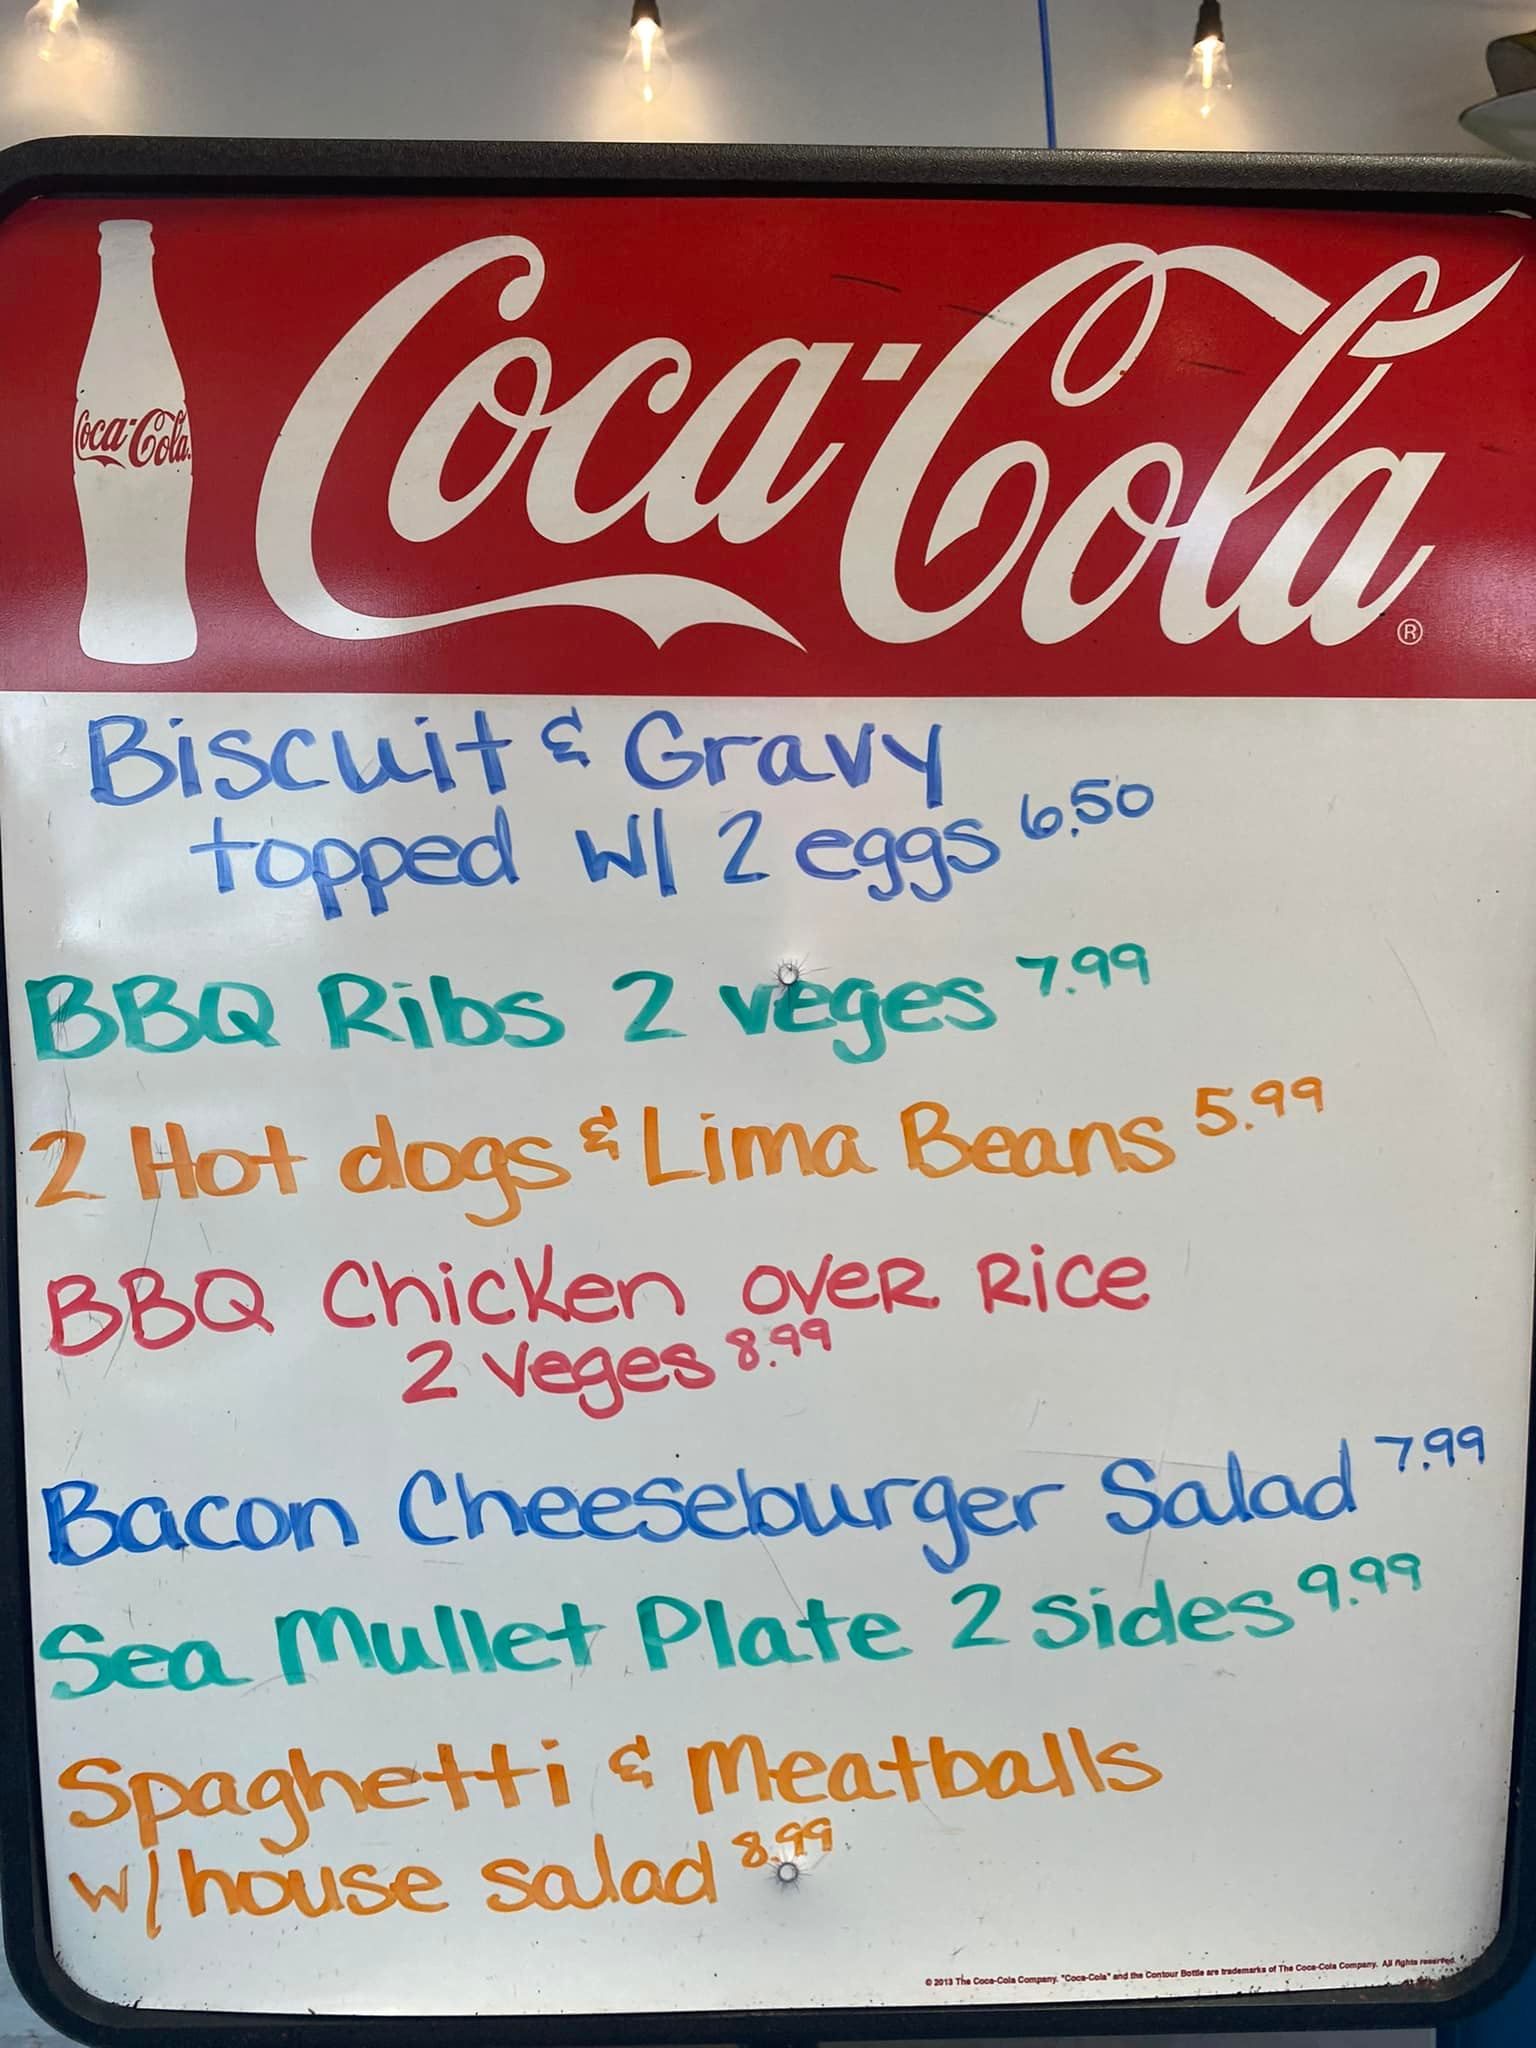 Coca-Cola
Coca-Cola®
Biscuit & Gravy
topped w/ 2 eggs 6.50
BBQ Ribs 2 veges 7.99
2 Hot dogs & Lima Beans 5.99
BBQ Chicken over Rice
2 veges 8.99
Bacon Cheeseburger Salad 7.99
Sea Mullet Plate 2 sides 9.99
Spaghetti & Meatballs
w/ house salad 8.99
© 2013 The Coca-Cola Company. "Coca-Cola" and the Contour Bottle are trademarks of The Coca-Cola Company. All rights reserved.